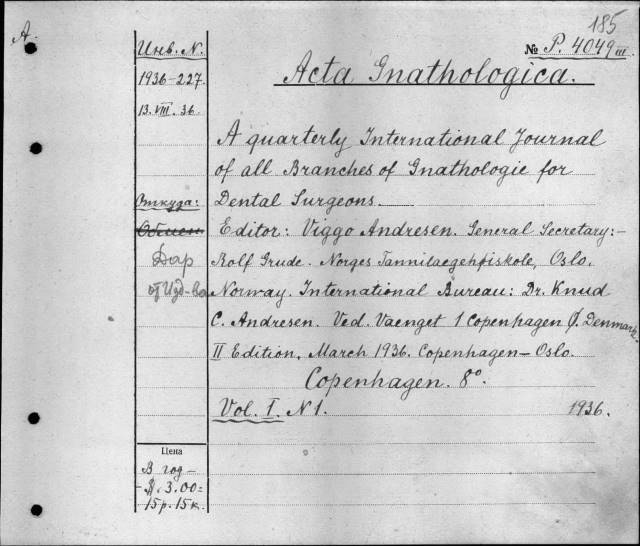 A.
185
Инв. N.
№ P. 4049 III
1936-227.
13. VIII. 36.
Acta Gnathologica.
A quarterly International Journal
of all Branches of Gnathologie for
Откуда:
Dental Surgeons.
Обмен
Editor: Viggo Andresen. General Secretary:-
Дар
Rolf Grude. Norges Tannilaegehøiskole, Oslo.
от Изд-ва
Norway. International Bureau: Dr. Knud
C. Andresen. Ved. Vaenget 1 Copenhagen Ø. Denmark.
II Edition, March 1936. Copenhagen-Oslo.
Copenhagen. 8°.
Vol. I. N 1. 1936.
Цена
В год -
- $. 3.00=
15 р. 15 к.